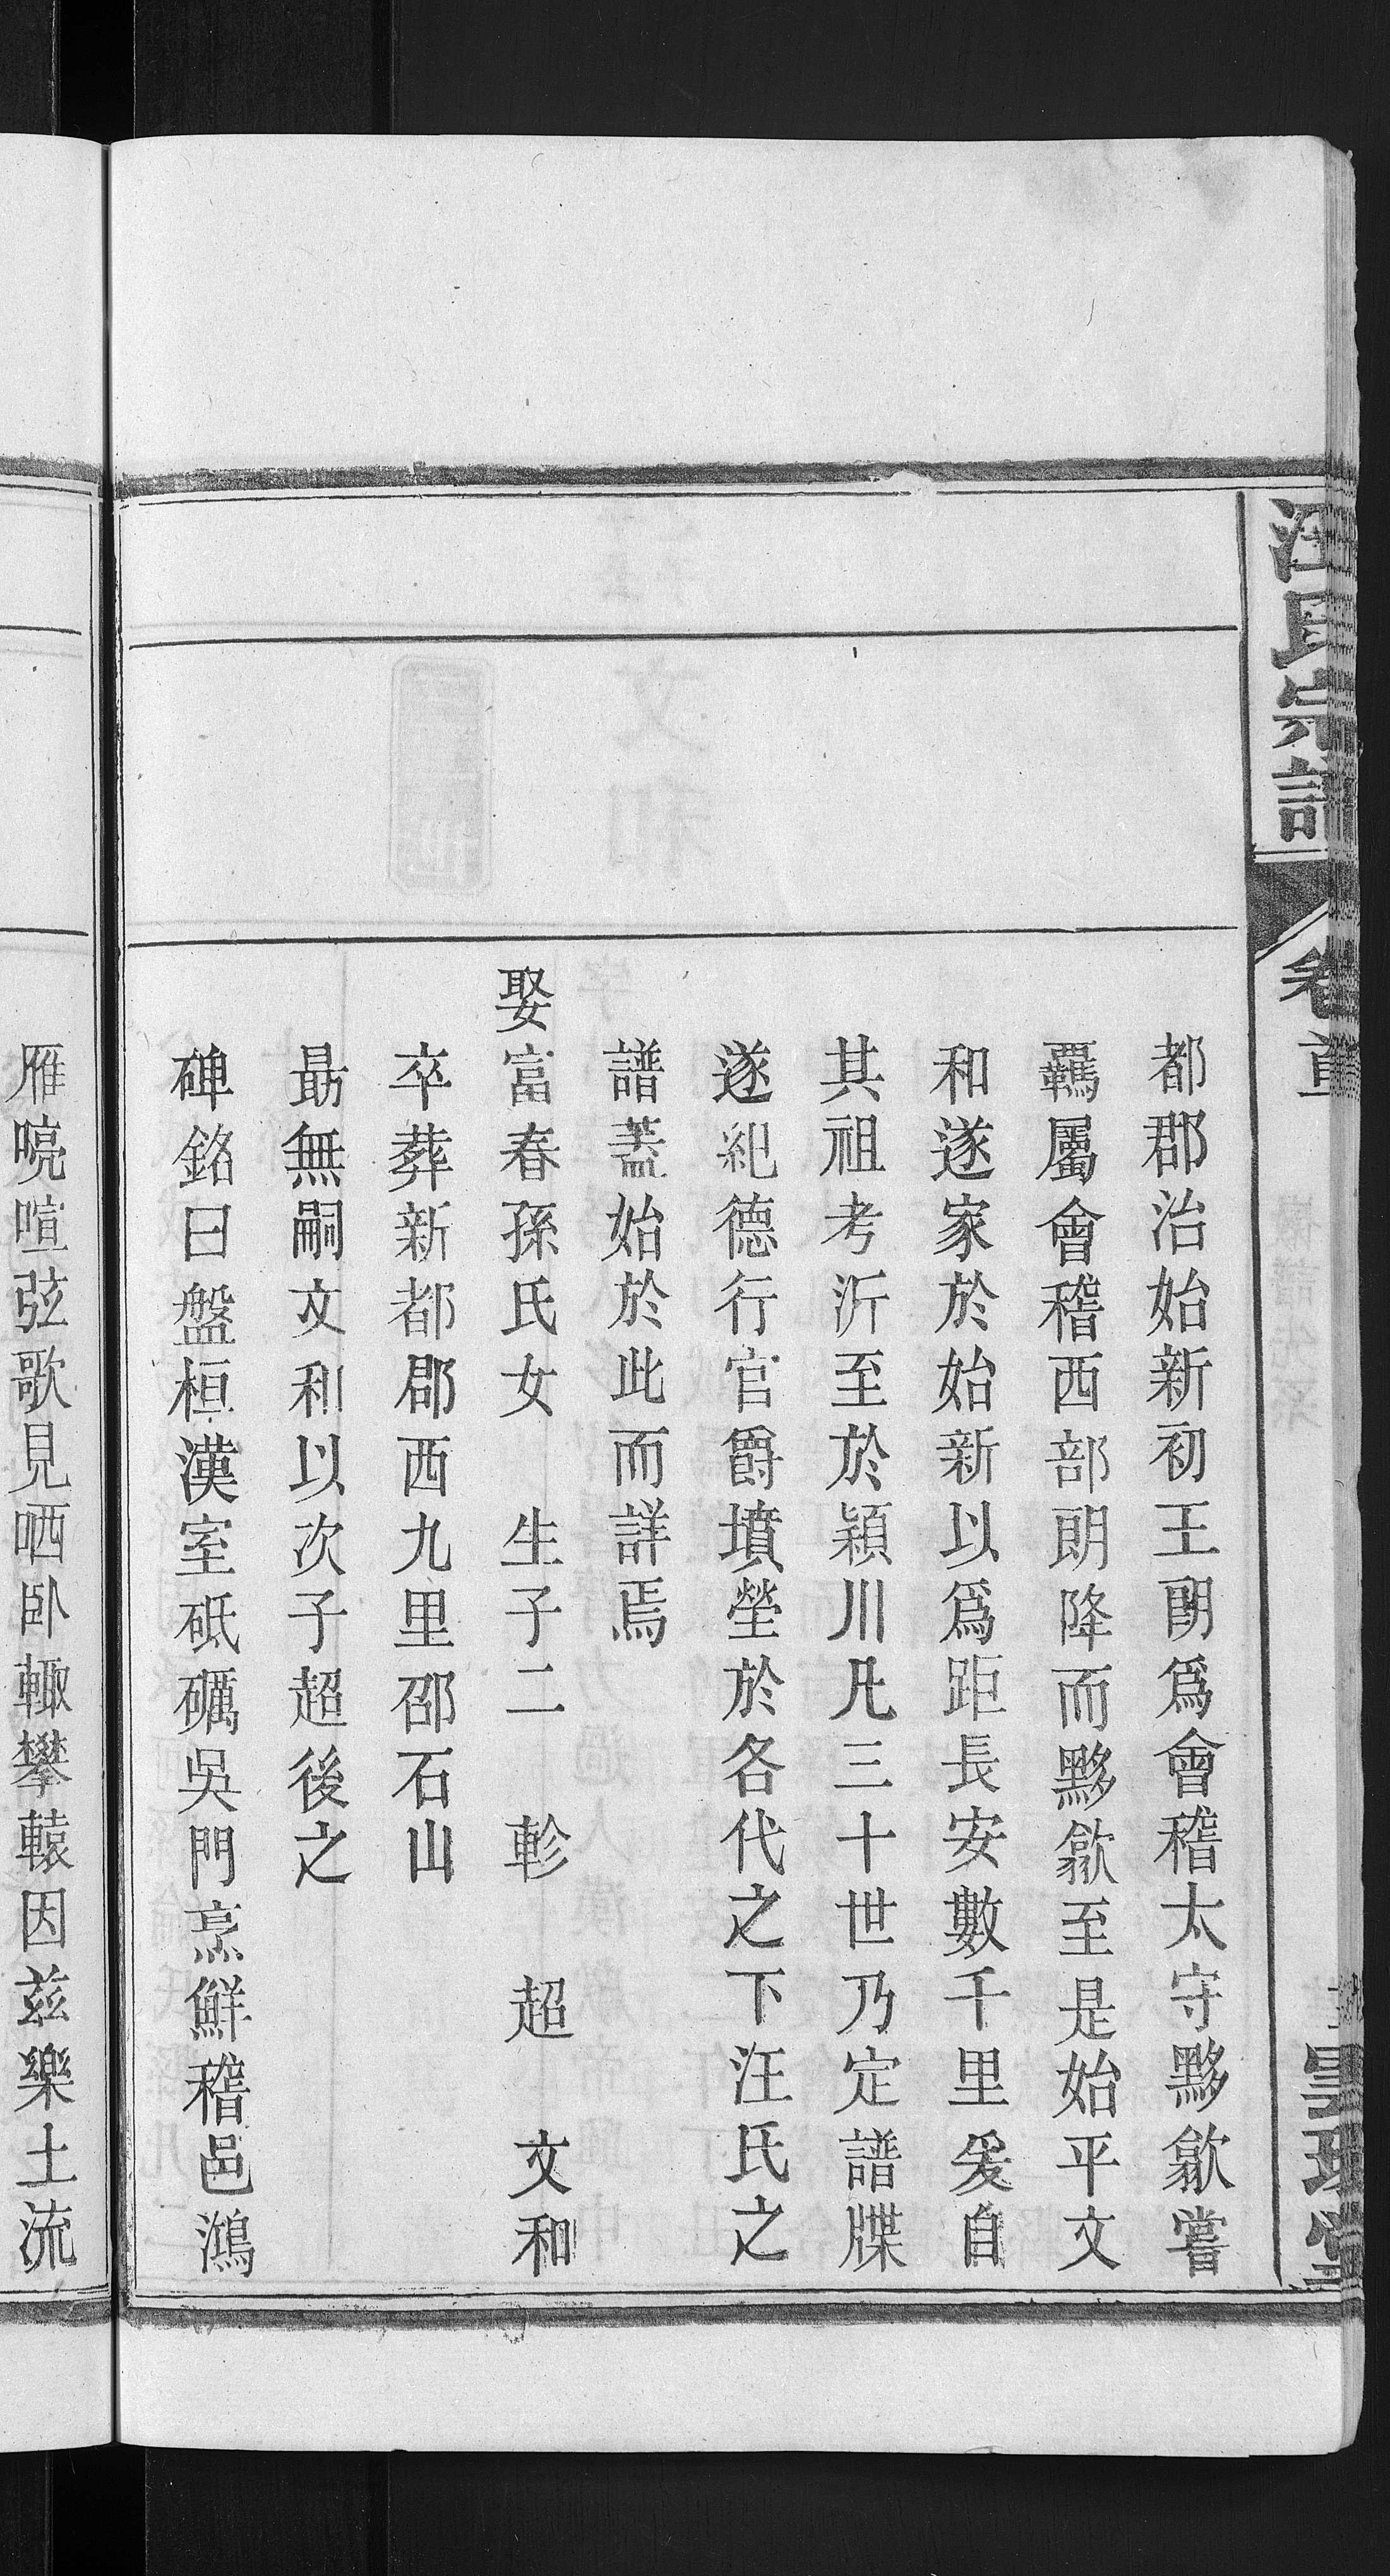 汪氏宗譜
卷首
都郡治始新初王朗爲會稽太守黟歙嘗
羈屬會稽西部朗降而黟歙至是始平文
和遂家於始新以爲距長安數千里爰自
其祖考沂至於潁川凡三十世乃定譜牒
遂紀德行官爵墳塋於各代之下汪氏之
譜蓋始於此而詳焉
娶富春孫氏女　生子二　軫　超　文和
卒葬新都郡西九里邵石山
勗無嗣文和以次子超後之
碑銘曰盤桓漢室砥礪吳門烹鮮稽邑鴻
雁嘵喧弦歌見哂臥轍攀轅因茲樂土流